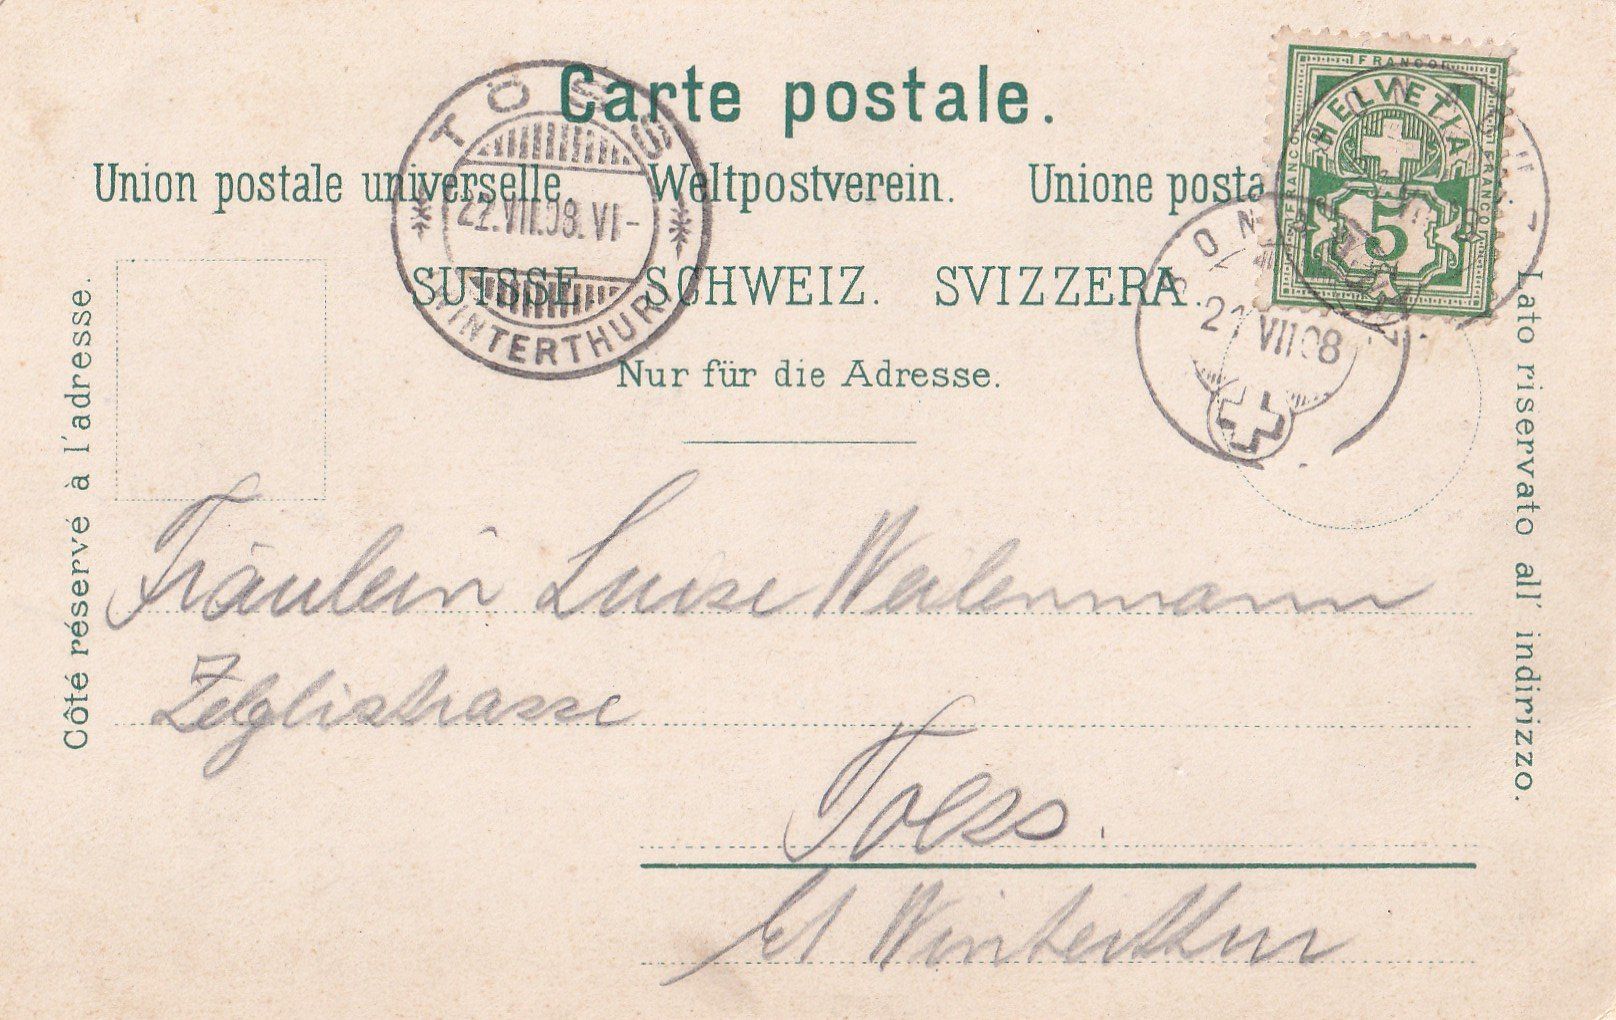 Carte postale.
Union postale universelle. Weltpostverein. Unione posta
SUISSE SCHWEIZ. SVIZZERA.
Nur für die Adresse.
Côté réservé à l'adresse.
Lato riservato all' indirizzo.
TÖSS
22.VII.08.VI-
(WINTERTHUR)
FRANCO
HELVETIA
FRANCO
FRANCO
5
VII 08
Fräulein Luise Weilenmann
Zelglistrasse
Toess.
Winterthur